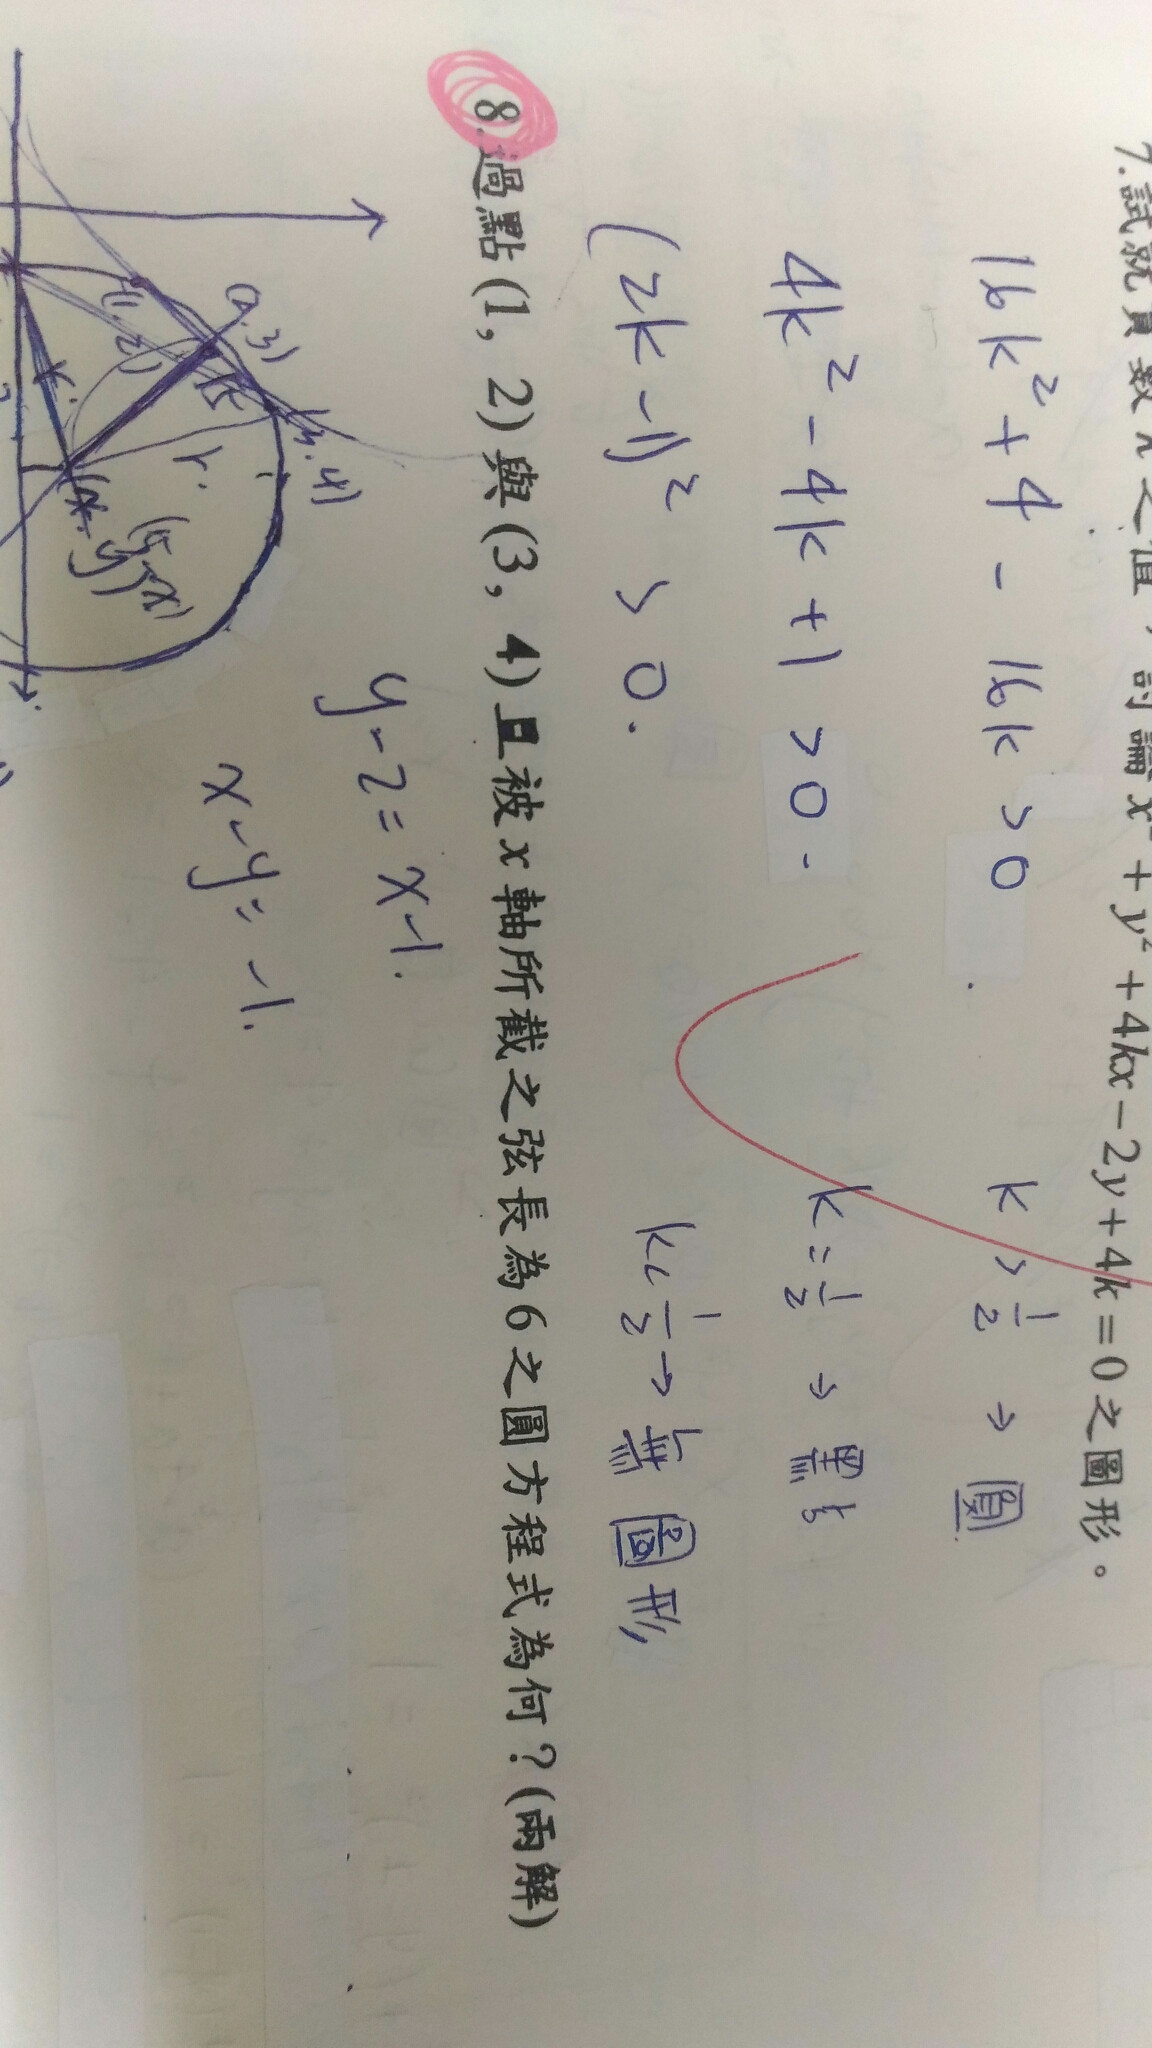 7.試就實數k之值,討論x²+y²+4kx-2y+4k=0之圖形。
16k²+4-16k>0
k>1/2→圓
4k²-4k+1>0.
k=1/2→點
(2k-1)²>0.
k<1/2→無圖形
8.過點(1,2)與(3,4)且被x軸所截之弦長為6之圓方程式為何?(兩解)
y-2=x-1.
x-y=-1.
(2,3)
(3,4)
(1,2)
r.
(x,y)